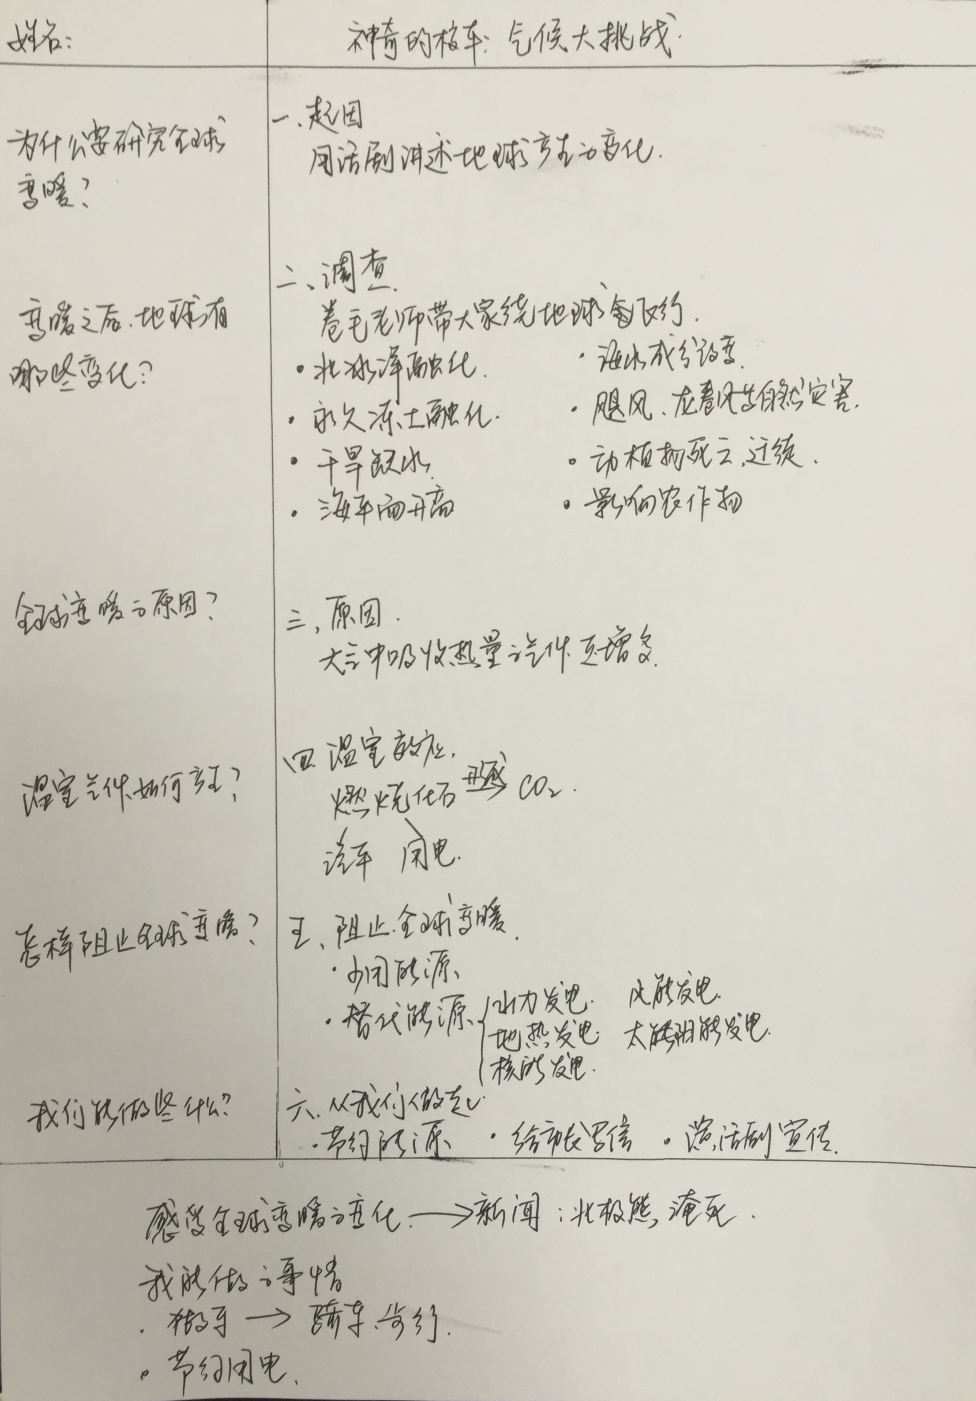 姓名：
神奇的校车：气候大挑战.
为什么要研究全球
变暖？
一、起因
用话剧讲述地球产生的变化.
变暖之后，地球有
哪些变化？
二、调查
卷毛老师带大家绕地球飞行.
· 北冰洋融化.
· 海水成分改变
· 永久冻土融化.
· 飓风、龙卷风等自然灾害.
· 干旱缺水
· 动植物死亡，迁徙.
· 海平面升高
· 影响农作物
全球变暖的原因？
三、原因.
大气中吸收热量的气体在增多.
温室气体如何产生？
四、温室效应.
燃烧化石 形成 CO₂.
汽车 用电.
怎样阻止全球变暖？
五、阻止全球变暖.
· 少用能源、
· 替代能源 水力发电. 风能发电.
地热发电. 太阳能发电.
核能发电.
我们能做些什么？
六、从我们做起.
· 节约能源、 · 给市长写信 · 演话剧宣传.
感受全球变暖的变化. → 新闻：北极熊淹死.
我能做的事情
· 做车 → 骑车、步行.
· 节约用电.